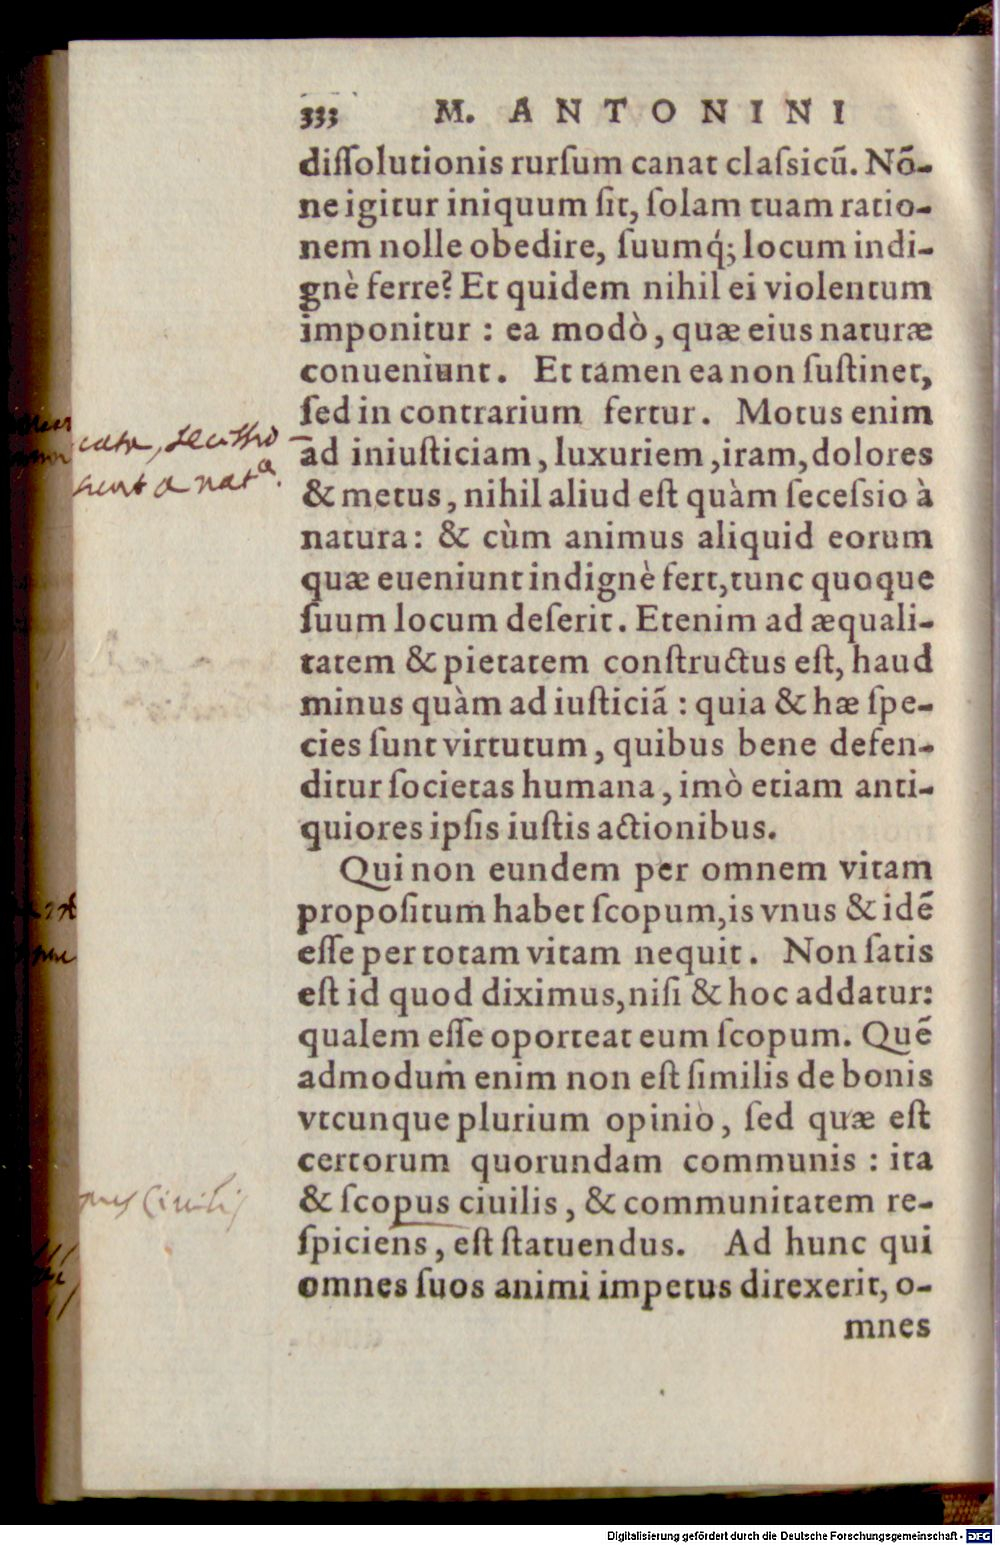 333 M. ANTONINI
diſſolutionis rurſum canat claſsicū. Nō-
ne igitur iniquum ſit, ſolam tuam ratio-
nem nolle obedire, ſuumq́; locum indi-
gnè ferre? Et quidem nihil ei violentum
imponitur : ea modò, quæ eius naturæ
conueniunt. Et tamen ea non ſuſtinet,
ſed in contrarium fertur. Motus enim
ad iniuſticiam, luxuriem, iram, dolores
& metus, nihil aliud eſt quàm ſeceſsio à
natura: & cùm animus aliquid eorum
quæ eueniunt indignè fert, tunc quoque
ſuum locum deſerit. Etenim ad æquali-
tatem & pietatem conſtructus eſt, haud
minus quàm ad iuſticiā : quia & hæ ſpe-
cies ſunt virtutum, quibus bene defen-
ditur ſocietas humana, imò etiam anti-
quiores ipſis iuſtis actionibus.
Qui non eundem per omnem vitam
propoſitum habet ſcopum, is vnus & idē
eſſe per totam vitam nequit. Non ſatis
eſt id quod diximus, niſi & hoc addatur:
qualem eſſe oporteat eum ſcopum. Quē
admodum enim non eſt ſimilis de bonis
vtcunque plurium opinio, ſed quæ eſt
certorum quorundam communis : ita
& ſcopus ciuilis, & communitatem re-
ſpiciens, eſt ſtatuendus. Ad hunc qui
omnes ſuos animi impetus direxerit, o-
mnes
sunt a nat<sup>a</sup>.
Civilis
Digitalisierung gefördert durch die Deutsche Forschungsgemeinschaft - DFG